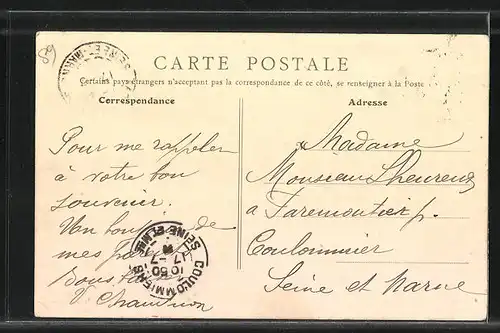 89
CARTE POSTALE
Certains pays étrangers n'acceptant pas la correspondance de ce côté, se renseigner à la Poste
Correspondance
Adresse
Pour me rappeler
à votre bon
souvenir.
Un
de
mes
V.
COULOMMIERS
SEINE-ET-MARNE
10 50
17 -7
Madame
Monsieur Lheureux
a Faremoutier p.
Coulommier
Seine et Marne